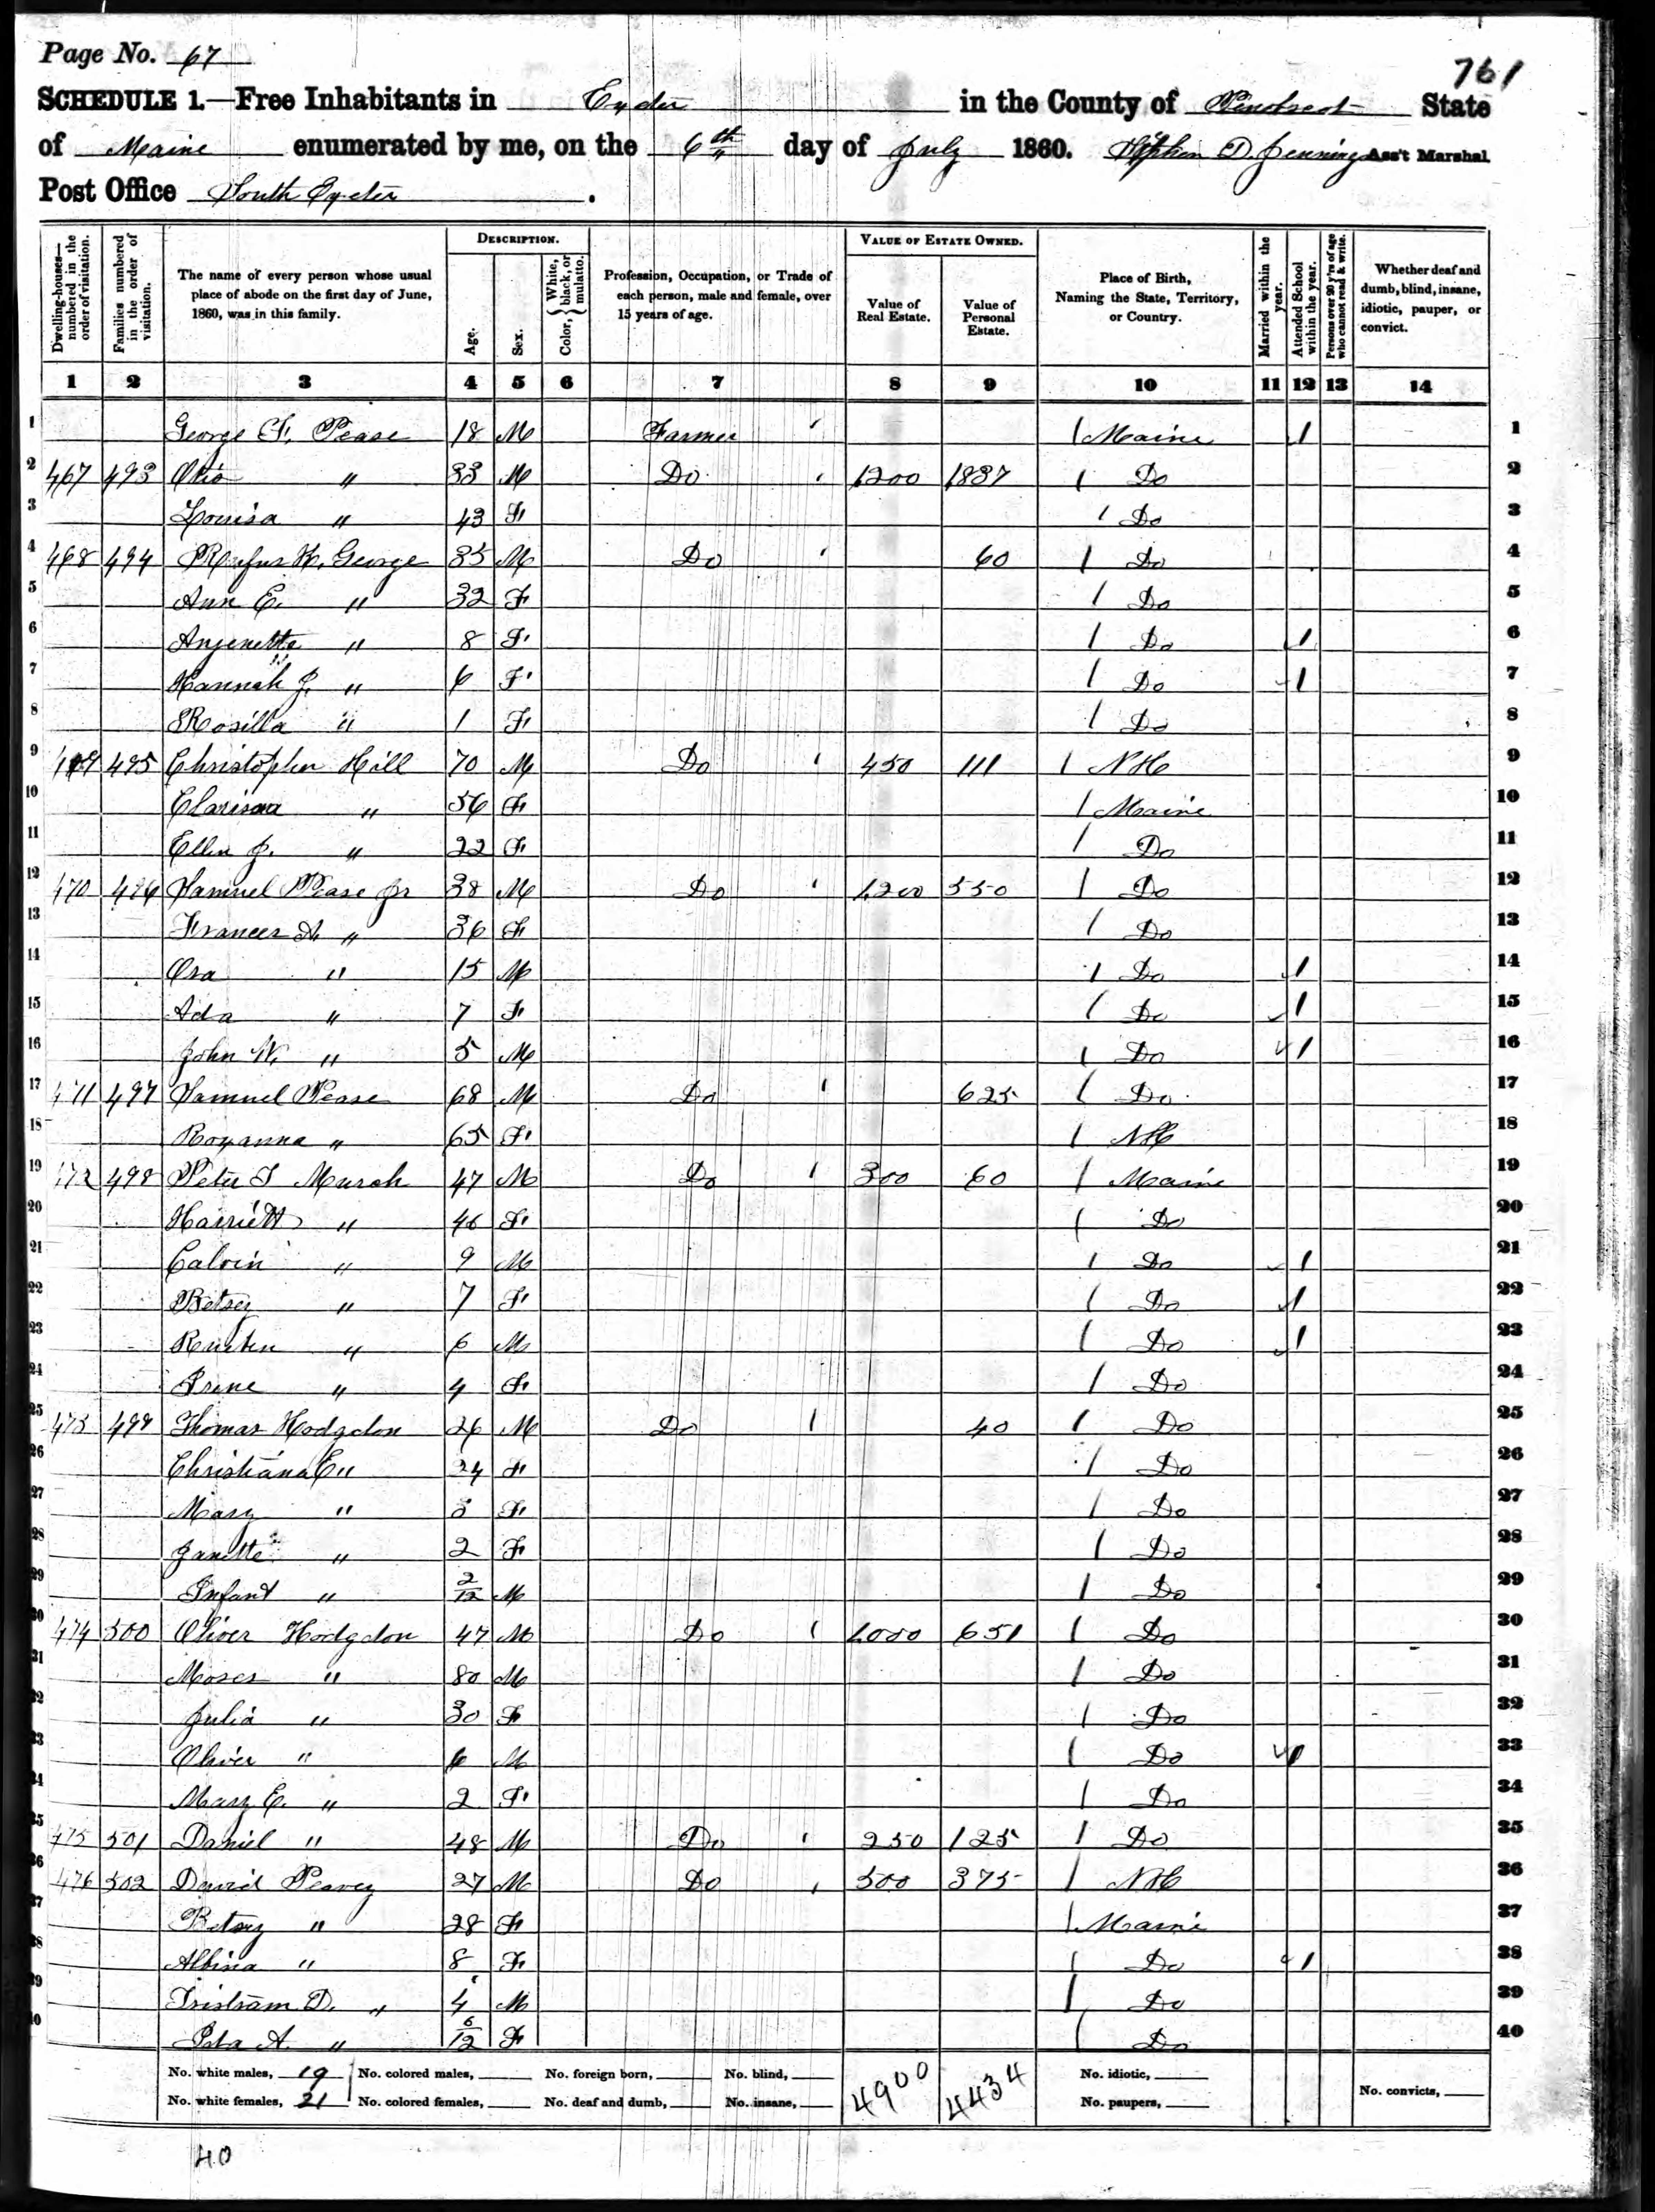 Page No. 67
761
SCHEDULE 1.—Free Inhabitants in Exeter in the County of Penobscot State
of Maine enumerated by me, on the 6th day of July 1860. Stephen D. Jennings Ass't Marshal
Post Office South Exeter.
Dwelling-houses— numbered in the order of visitation.
Families numbered in the order of visitation.
The name of every person whose usual place of abode on the first day of June, 1860, was in this family.
DESCRIPTION.
Age.
Sex.
Color, { White, black, or mulatto.
Profession, Occupation, or Trade of each person, male and female, over 15 years of age.
VALUE OF ESTATE OWNED.
Value of Real Estate.
Value of Personal Estate.
Place of Birth, Naming the State, Territory, or Country.
Married within the year.
Attended School within the year.
Persons over 20 y'rs of age who cannot read & write.
Whether deaf and dumb, blind, insane, idiotic, pauper, or convict.
1 2 3 4 5 6 7 8 9 10 11 12 13 14
1 George F. Pease 18 M Farmer / Maine 1 1
2 467 493 " 33 M Do 1200 1837 / Do 2
3 Louisa " 43 F / Do 3
4 468 494 Rufus K. George 35 M Do 60 / Do 4
5 Ann E. " 32 F / Do 5
6 Anjenette " 8 F / Do 1 6
7 Hannah J. " 6 F / Do 1 7
8 Rosilla " 1 F / Do 8
9 469 495 Christopher Hill 70 M Do 450 111 / NH 9
10 Clarissa " 56 F / Maine 10
11 Ellen J. " 22 F / Do 11
12 470 496 Samuel Pease Jr 38 M Do 1200 550 / Do 12
13 Frances A. " 36 F / Do 13
14 Ora " 15 M / Do 1 14
15 Ada " 7 F / Do 1 15
16 John W. " 5 M / Do 1 16
17 471 497 Samuel Pease 68 M Do 625 / Do 17
18 Roxanna " 65 F / NH 18
19 472 498 Peter S Mursh 47 M Do 300 60 / Maine 19
20 Harriett " 46 F / Do 20
21 Calvin " 9 M / Do 1 21
22 Betsey " 7 F / Do 1 22
23 Reuben " 6 M / Do 1 23
24 Irene " 4 F / Do 24
25 473 499 Thomas Hodgdon 26 M Do 40 / Do 25
26 Christiana E " 24 F / Do 26
27 Mary " 3 F / Do 27
28 Janette " 2 F / Do 28
29 Infant " 2/12 M / Do 29
30 474 500 Oliver Hodgdon 47 M Do 1000 651 / Do 30
31 Moses " 80 M / Do 31
32 Julia " 30 F / Do 32
33 Oliver " 6 M / Do 1 33
34 Mary E. " 2 F / Do 34
35 475 501 Daniel " 48 M Do 250 125 / Do 35
36 476 502 David Peavey 27 M Do 500 375 / NH 36
37 Betsey " 28 F / Maine 37
38 Albina " 8 F / Do 1 38
39 Tristram D. " 4 M / Do 39
40 Ida A. " 6/12 F / Do 40
No. white males, 19 No. colored males, No. foreign born, No. blind, 4900 4434 No. idiotic, No. convicts,
No. white females, 21 No. colored females, No. deaf and dumb, No. insane, No. paupers,
40